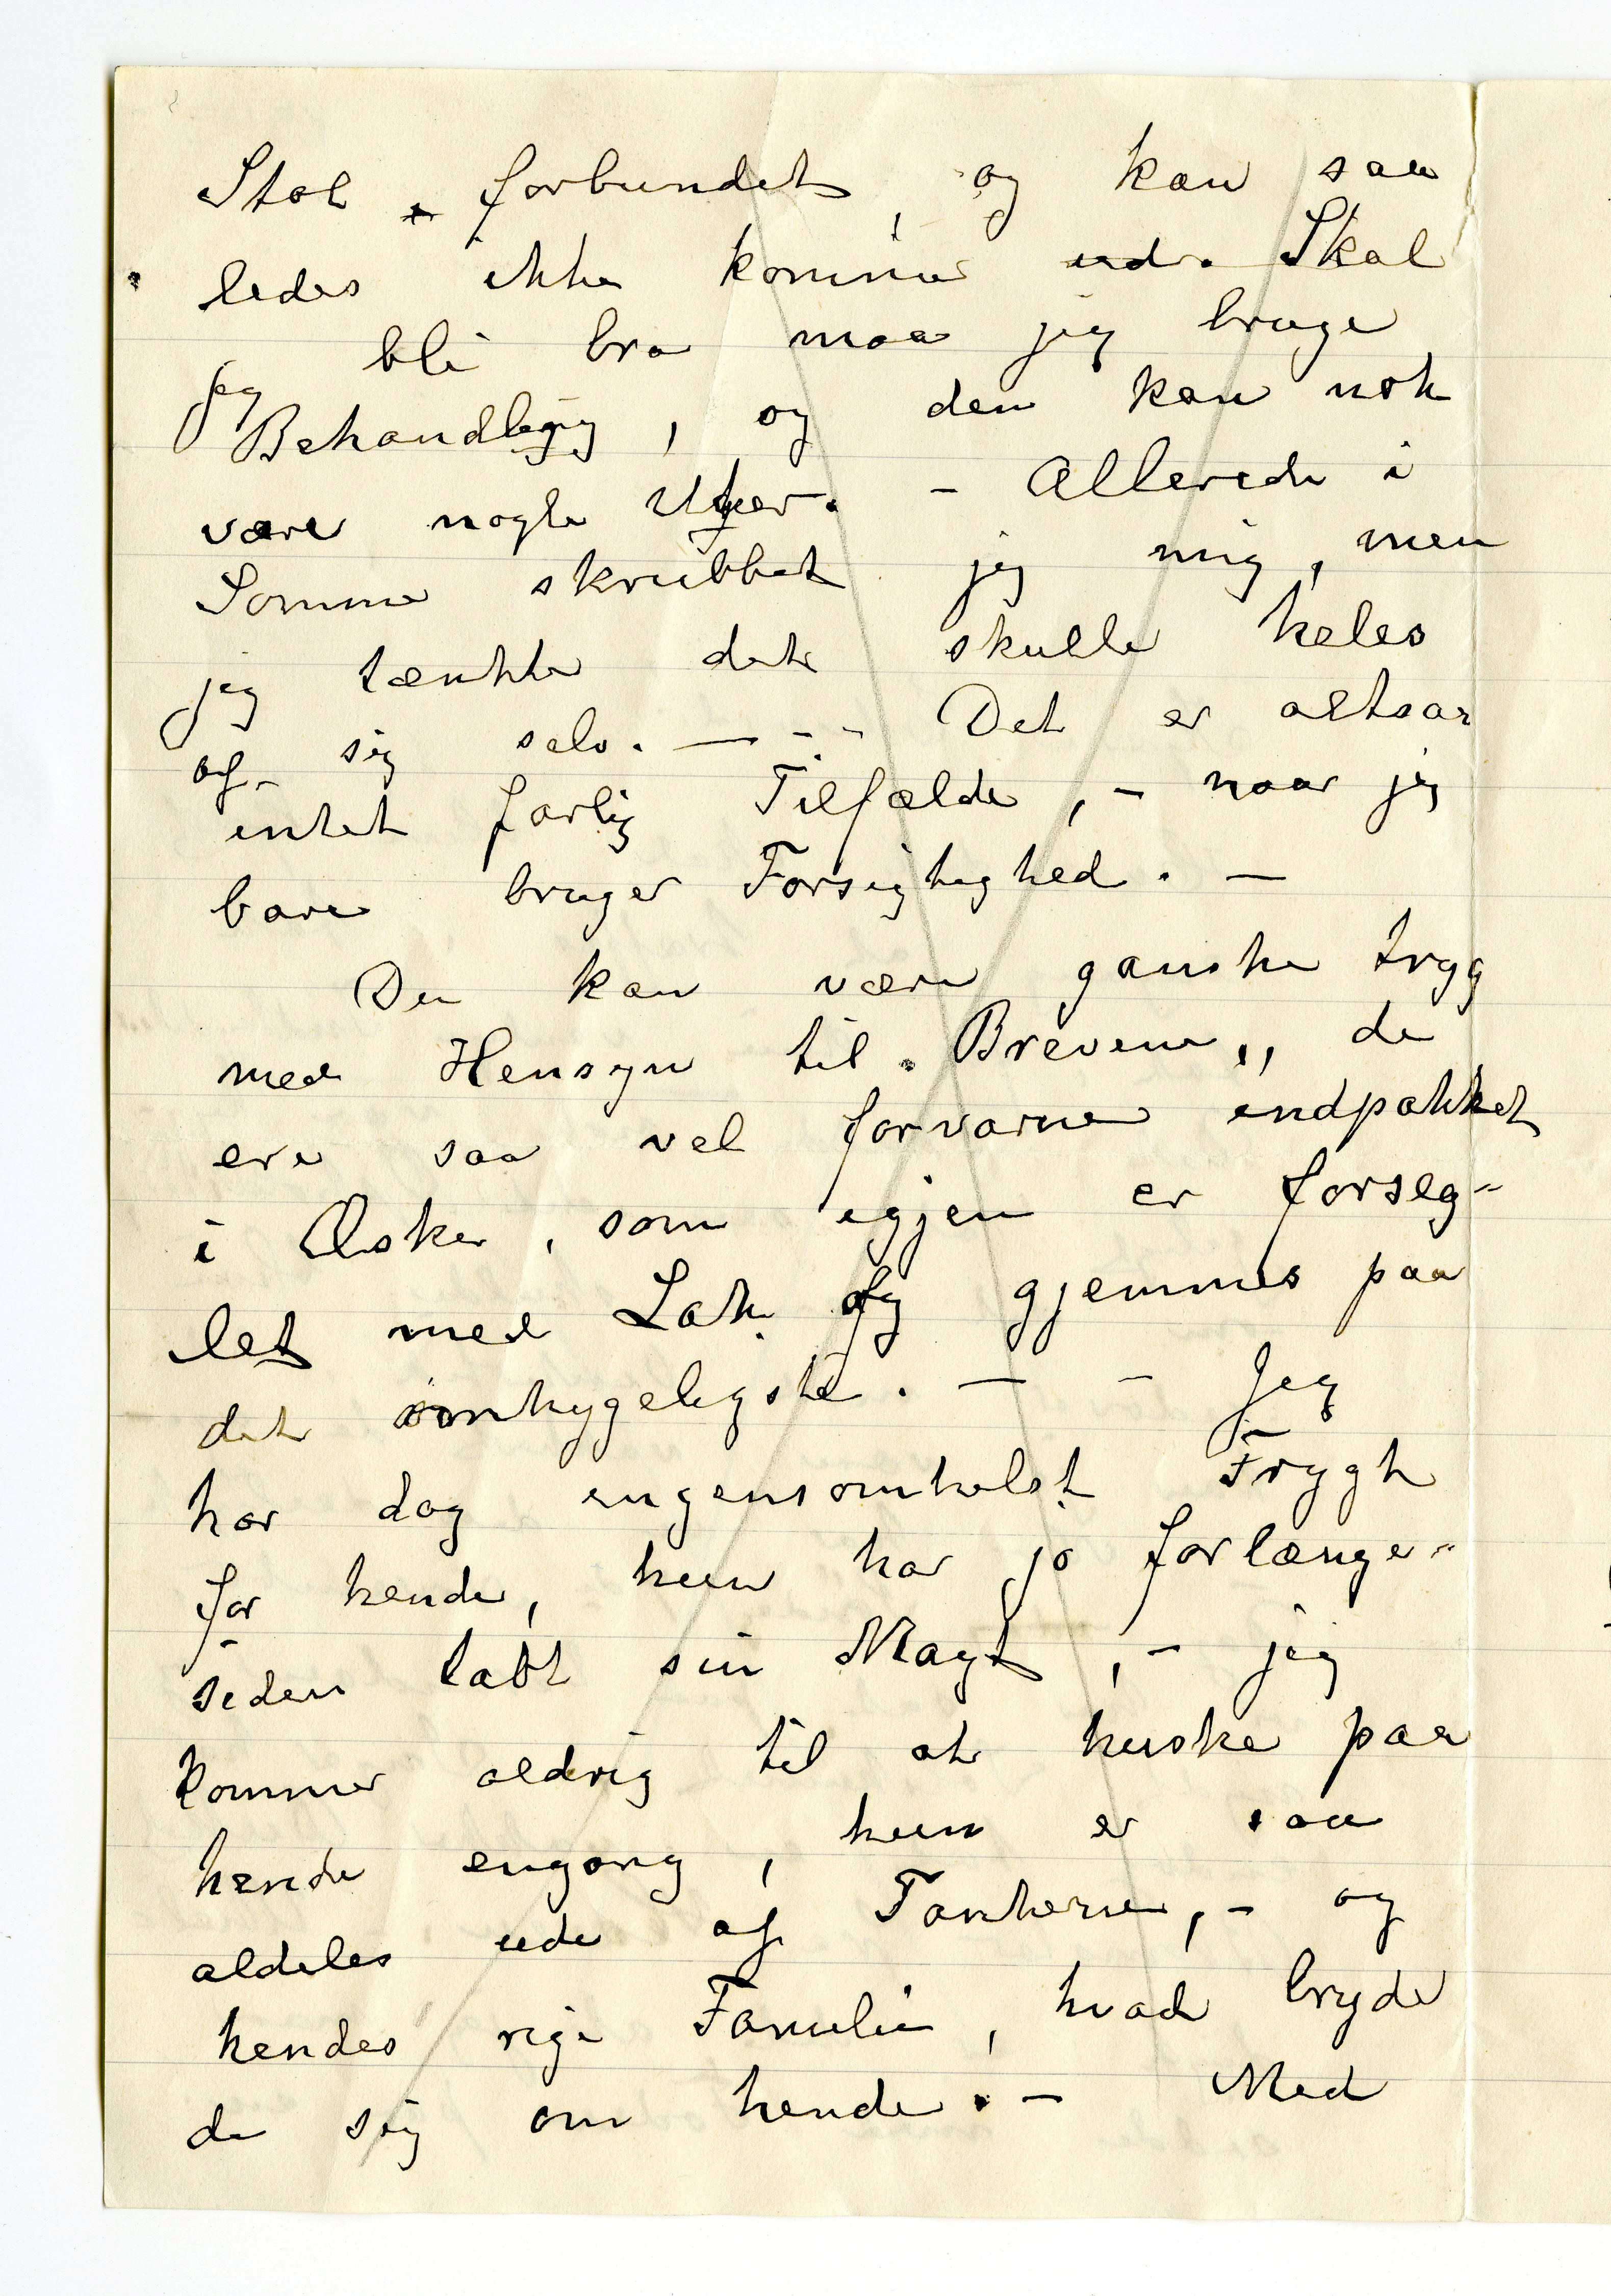 Stol forbundet, og kan saa
ledes ikke komme ud. Skal
jeg bli bra maa jeg bruge
Behandling, og den kan nok
være nogle Uger. - Allerede i
Somme skrubbet jeg mig, men
jeg tænkte det skulle heles
af sig selv. — - - Det er altsaa
intet farlig Tilfælde, - naar jeg
bare bruger Forsigtighed. —
Du kan være ganske tryg
med Hensyn til Brevene, de
ere saa vel forvarne indpakket
i Æske, som igjen er forseg-
let med Lak og gjemmes paa
det omhygeligste. — - Jeg
har dog ingensomhelst Frygt
for hende, hun har jo forlænge-
siden tabt sin Magt, - jeg
kommer aldrig til at huske paa
hende engang, hun er saa
aldeles ude af Tankerne, - og
hendes rige Familie, hvad bryde
de sig om hende. - Med